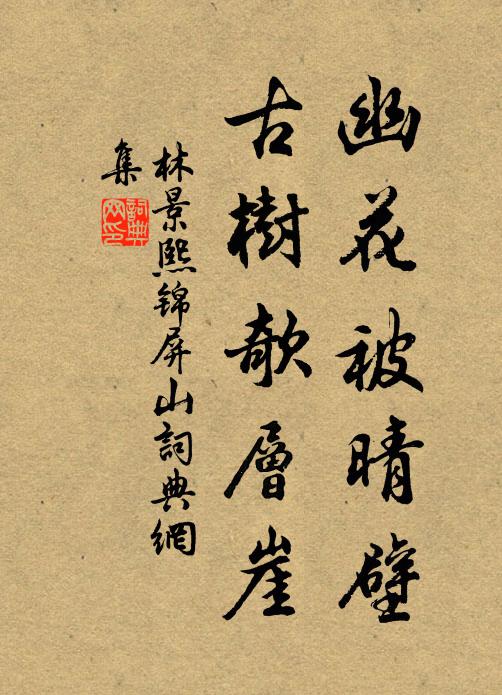 幽花被晴壁
古樹欹層崖
林景熙錦屏山詞典網
集
詞典網印